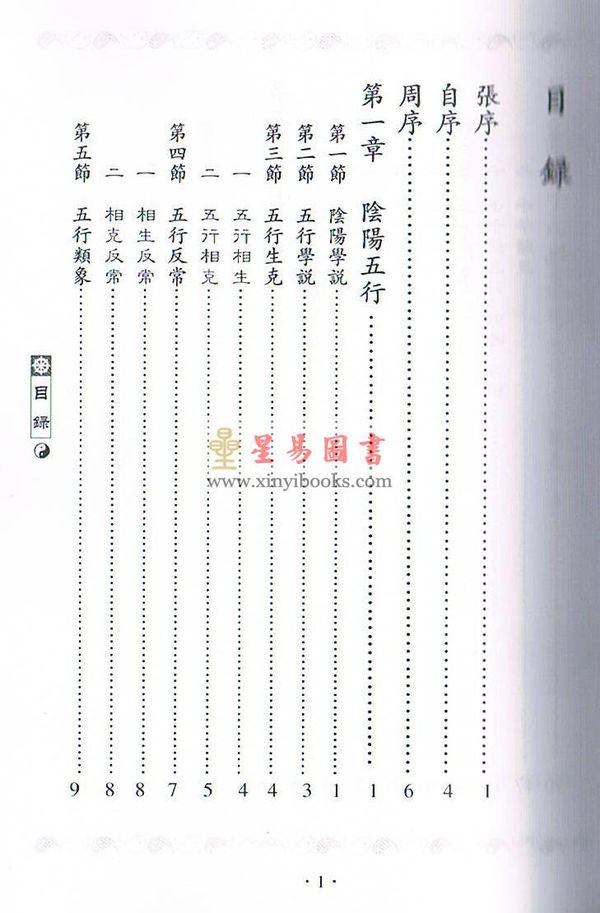 目錄
張序 1
自序 4
周序 6
第一章 陰陽五行 1
第一節 陰陽學説 1
第二節 五行學説 3
第三節 五行生克 4
一 五行相生 4
二 五行相克 5
第四節 五行反常 7
一 相生反常 8
二 相克反常 8
第五節 五行類象 9
目錄
星易圖書
www.xinyibooks.com
·1·